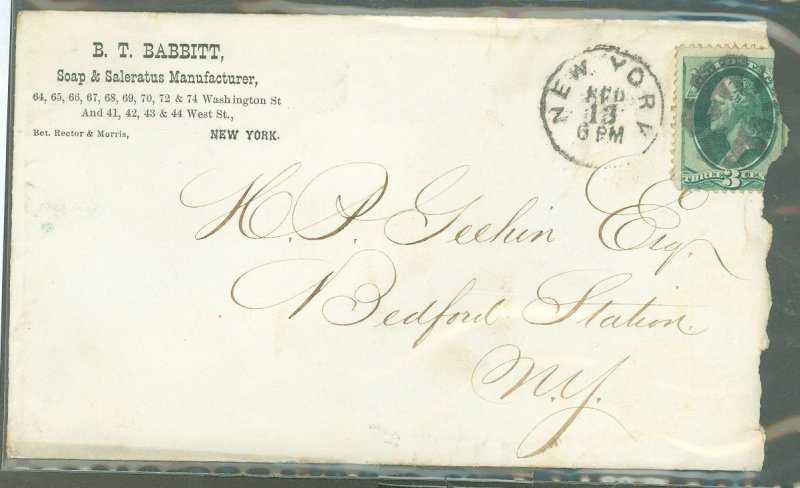 B. T. BABBITT,
Soap & Saleratus Manufacturer,
64, 65, 66, 67, 68, 69, 70, 72 & 74 Washington St
And 41, 42, 43 & 44 West St.,
Bet. Rector & Morris, NEW YORK.
NEW YORK
FEB
13
6 PM
THREE 3 CEN
H. P. Geehin Esq.
Bedford Station.
N.Y.